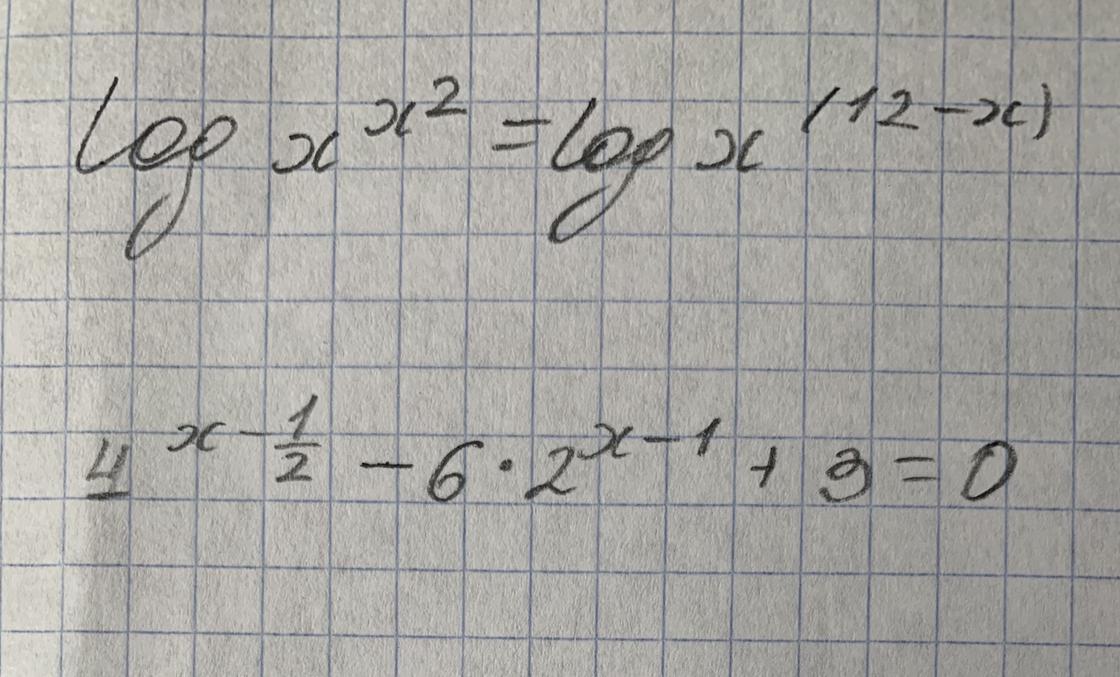 log x^{x^2} = log x^{(12-x)}
4^{x-\frac{1}{2}} - 6 · 2^{x-1} + 3 = 0